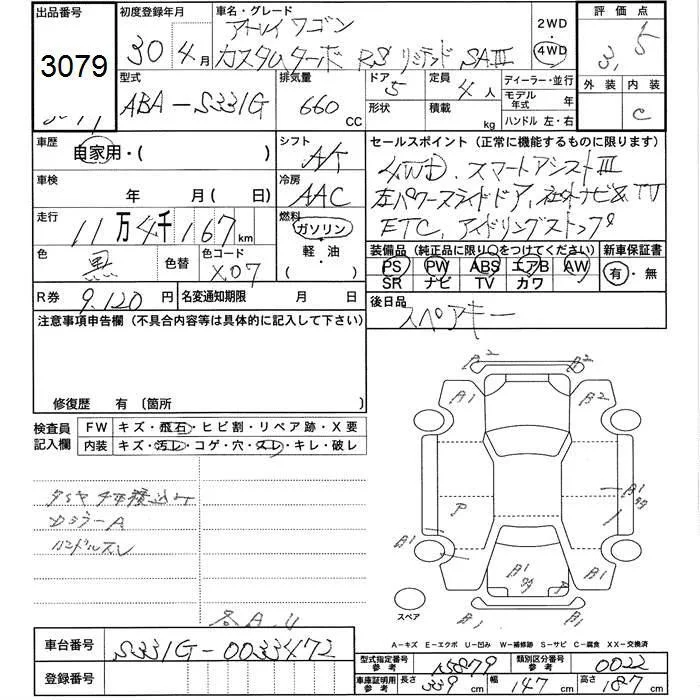 出品番号 初度登録年月 車名・グレード 2WD 評価点
3079 30年4月 アトレイ ワゴン 4WD 3.5
カスタムターボ RS リミテッド SAⅢ
型式 排気量 ドア 定員 ディーラー・並行 外装 内装
ABA-S331G 660 CC 5 4人 モデル年式 年 C
形状 積載 kg ハンドル 左・右
車歴 自家用・( ) シフト A/T セールスポイント (正常に機能するものに限ります)
4WD. スマートアシストⅢ
車検 年 月(日) 冷房 AAC 左パワースライドドア, 社外ナビ&TV
走行 11万4千167km 燃料 ガソリン・軽・油 ETC, アイドリングストップ
色 黒 色替 色コード X07 装備品 (純正品に限り○をつけてください) 新車保証書
PS PW ABS エアB AW 有・無
SR ナビ TV カワ
R券 9,120円 名変通知期限 月 日 後日品
スペアキー
注意事項申告欄 (不具合内容等は具体的に記入して下さい)
修復歴 有 (箇所
検査員記入欄 FW キズ・飛石・ヒビ割・リペア跡・X要
内装 キズ・汚レ・コゲ・穴・スレ・キレ・破レ
タイヤ4本積込み
Dミラー A
ハンドルスレ
各A.U
A2 A2
A1 B2
P B1
B1 B1
B1 P
スペア
A-キズ E-エクボ U-凹み W-補修跡 S-サビ C-腐食 XX-交換済
車台番号 S331G-0033472
型式指定番号 参考 15879 類別区分番号 参考 0022
登録番号 車庫証明用 参考 長さ 339 cm 幅 147 cm 高さ 187 cm